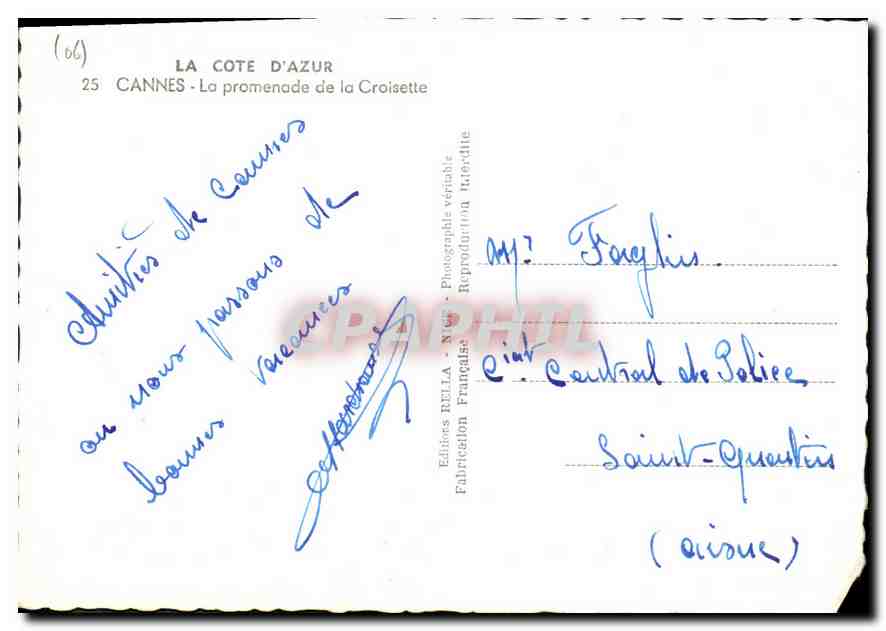 (06)
LA COTE D'AZUR
25 CANNES - La promenade de la Croisette
Amitiés de Cannes
ou nous passons de
bonnes vacances
Editions RELLA - NICE - Photographie véritable
Fabrication Française - Reproduction Interdite
CPAPHIL
Mr
Ciat Central de Police
Saint-Quentin
(aisne)